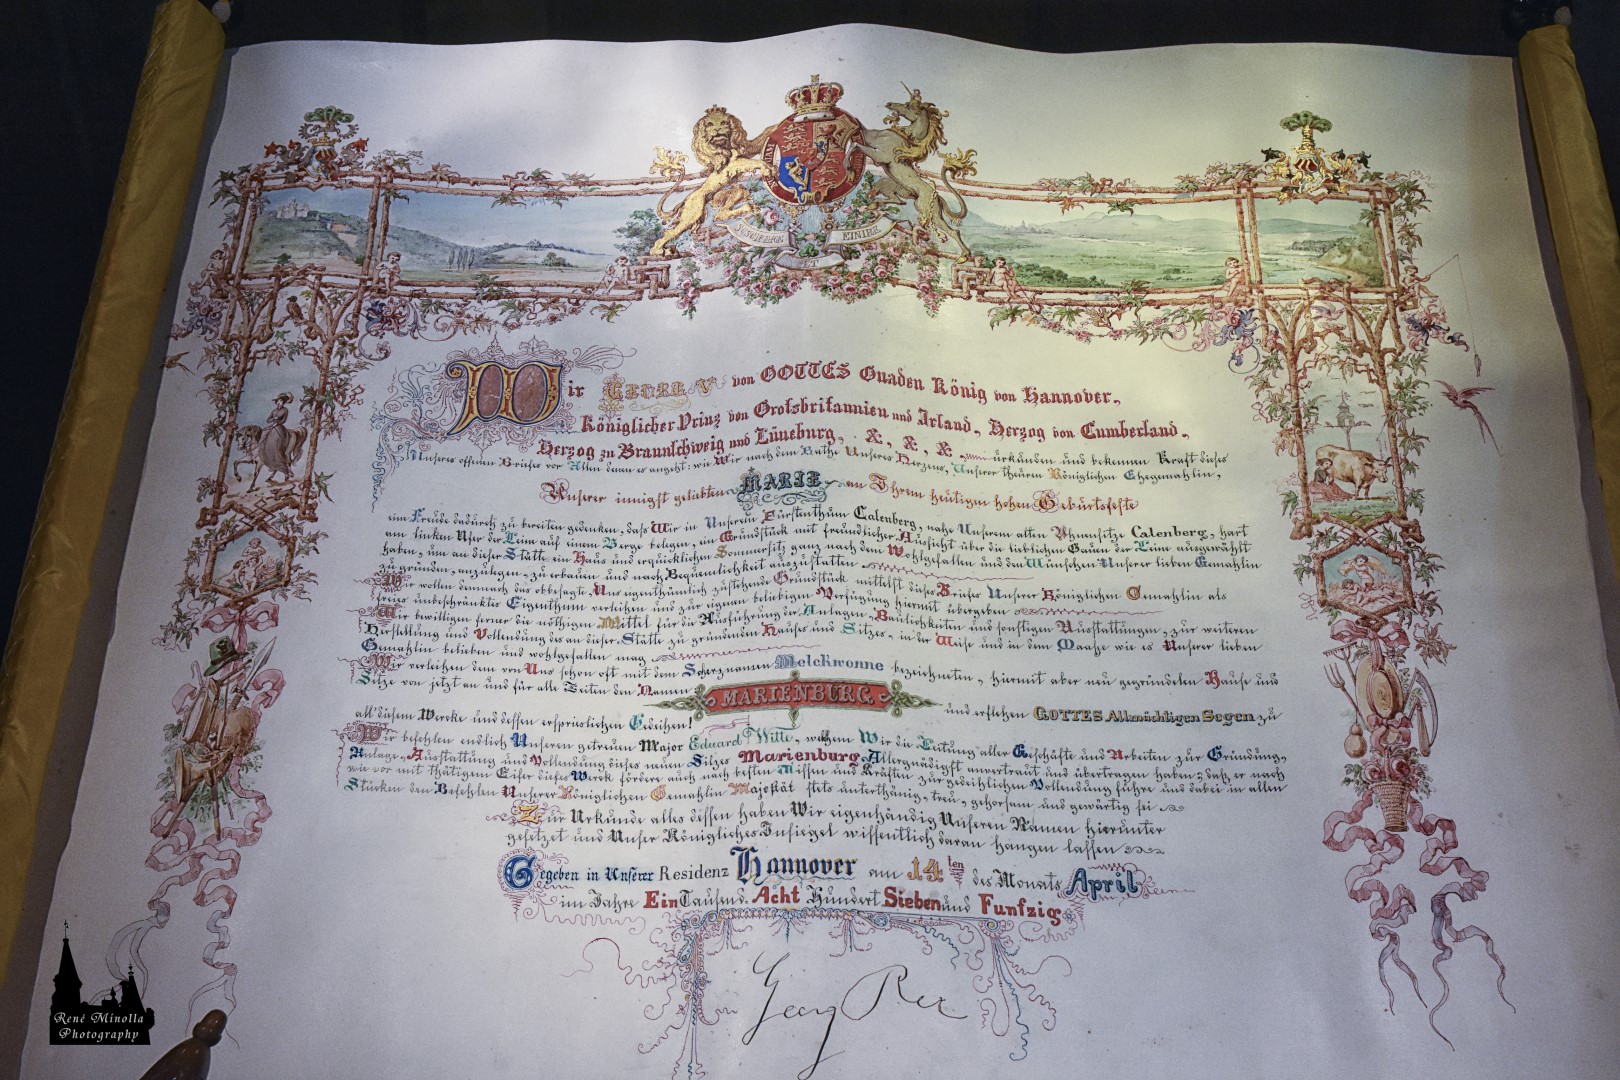 SUSCIPERE
FINIRE
Wir GEORG V. von GOTTES Gnaden König von Hannover,
Königlicher Prinz von Großbritannien und Irland, Herzog von Cumberland,
Herzog zu Braunschweig und Lüneburg, &, &, &, urkunden und bekennen Kraft dieses
Unseres offenen Briefes vor Allen denen es angeht: wie Wir nach dem Rathe Unseres Herzens, Unserer theuren Königlichen Ehegemahlin,
Unserer innigst geliebten MARIE an Ihrem heutigen hohen Geburtsfeste
eine Freude dadurch zu bereiten gedenken, daß Wir in Unserem Fürstenthum Calenberg, nahe Unserem alten Ahnensitze Calenberg, hart
am linken Ufer der Leine auf einem Berge belegen, ein Grundstück mit freundlicher Aussicht über die lieblichen Gauen der Leine ausgewählt
haben, um an dieser Stätte ein Haus und erquicklichen Sommersitz ganz nach dem Wohlgefallen und den Wünschen Unserer lieben Gemahlin
zu gründen, anzulegen, zu erbauen und nach Bequemlichkeit auszustatten
Wir wollen demnach das obbesagte, Uns eigenthümlich zustehende Grundstück mittelst dieses Briefes Unserer Königlichen Gemahlin als
freies unbeschränktes Eigenthum verleihen und zur eigenen beliebigen Verfügung hiermit übergeben
Wir bewilligen ferner die nöthigen Mittel für die Ausführung der Anlagen, Baulichkeiten und sonstigen Ausstattungen, zur weiteren
Herstellung und Vollendung des an dieser Stätte zu gründenden Hauses und Sitzes, in der Weise und in dem Maaße wie es Unserer lieben
Gemahlin belieben und wohlgefallen mag
Wir verleihen dem von Uns schon oft mit dem Scherznamen Melckwonne bezeichneten, hiermit aber neu gegründeten Hause und
Sitze von jetzt an und für alle Zeiten den Namen MARIENBURG und erflehen GOTTES Allmächtigen Segen zu
all' diesem Wercke und dessen ersprieslichen Gedeihen!
Wir befehlen endlich Unserem getreuen Major Eduard Witte, welchem Wir die Leitung aller Geschäfte und Arbeiten zur Gründung,
Anlage, Ausstattung und Vollendung dieses neuen Sitzes Marienburg Allergnädigst anvertraut und übertragen haben, daß er nach
wie vor mit thätigem Eifer dieses Werk fördere auch nach besten Wissen und Kräften zur gedeihlichen Vollendung führe und dabei in allen
Stücken den Befehlen Unserer Königlichen Gemahlin Majestät stets unterthänig, treu, gehorsam und gewärtig sei
Zur Urkunde alles dessen haben Wir eigenhändig Unseren Namen hierunter
gesetzet und Unser Königliches Insiegel wissentlich daran hangen lassen
Gegeben in Unserer Residenz Hannover am 14ten des Monats April
im Jahre Ein Tausend Acht Hundert Sieben und Funfzig.
Georg Rex
René Minolla
Photography